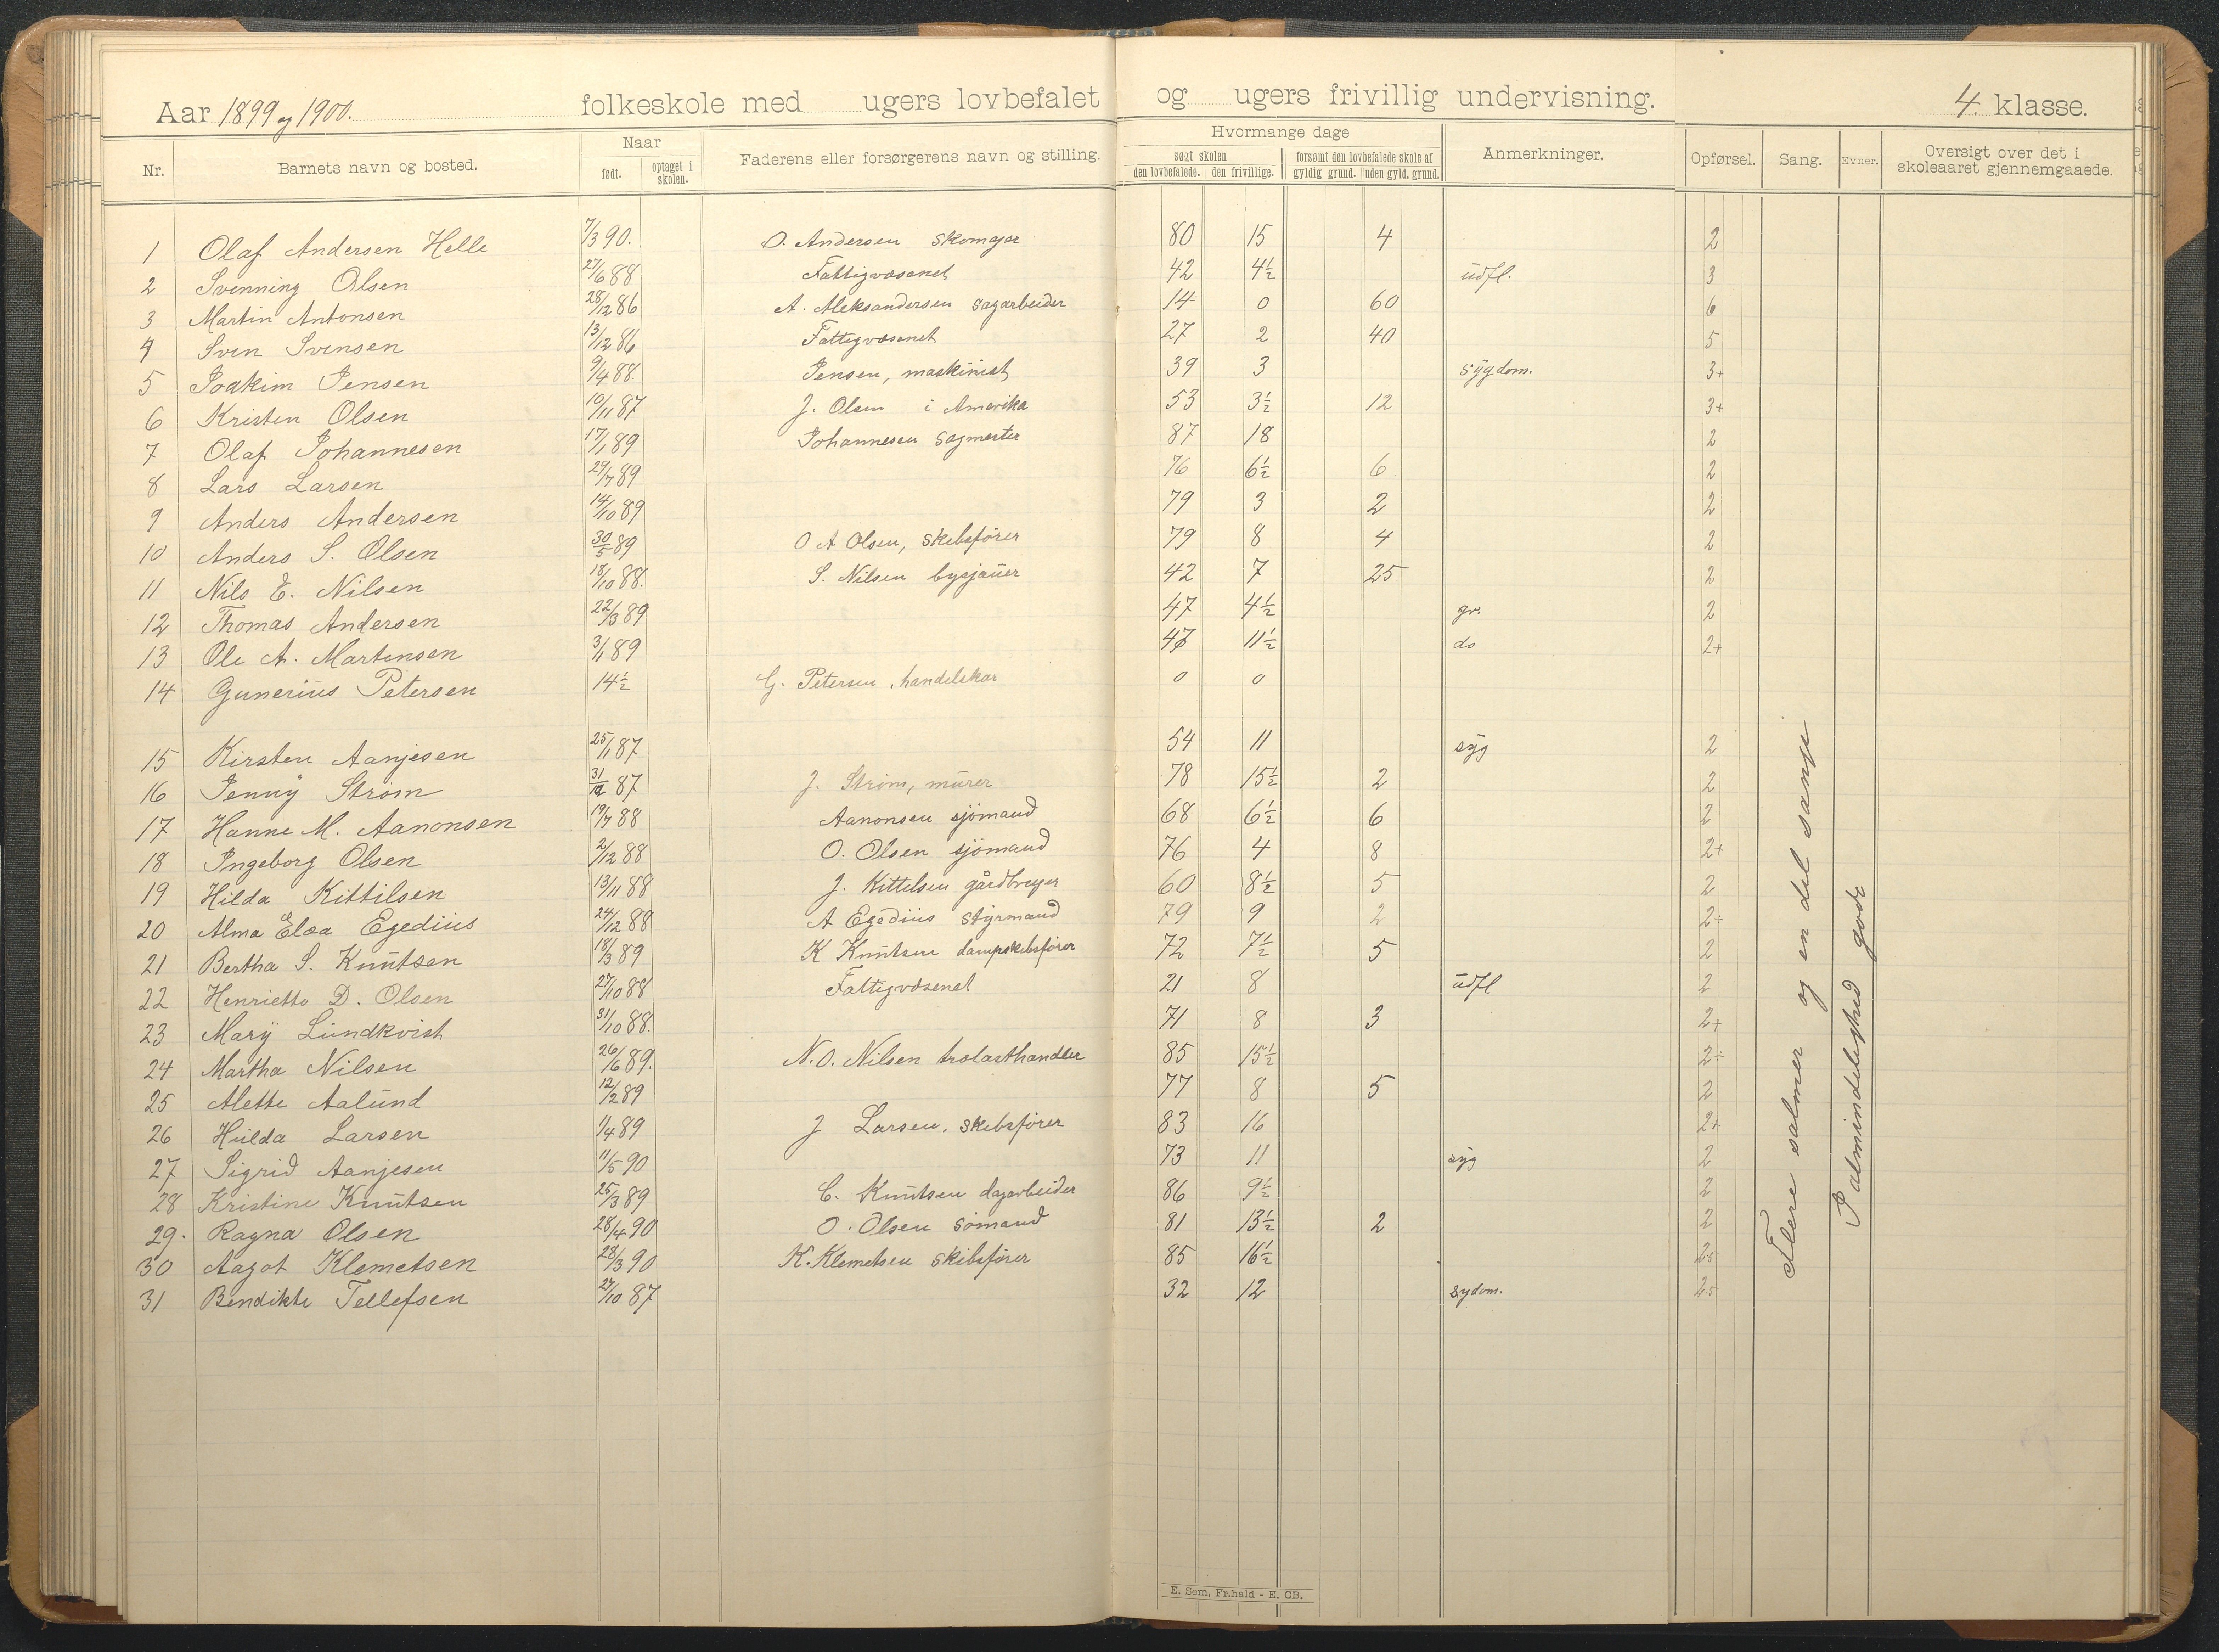 Aar 1899 og 1900. folkeskole med ugers lovbefalet og ugers frivillig undervisning. 4. klasse.
Nr. Barnets navn og bosted. Naar født. optaget i skolen. Faderens eller forsørgerens navn og stilling. Hvormange dage søgt skolen den lovbefalede. den frivillige. forsømt den lovbefalede skole af gyldig grund. uden gyld. grund. Anmerkninger. Opførsel. Sang. Evner. Oversigt over det i skoleaaret gjennemgaaede.
1 Olaf Andersen Helle 7/3 90. O. Andersen skomager 80 15 4 2
2 Svenning Olsen 27/6 88 Fattigvæsenet 42 4½ udfl. 3
3 Martin Antonsen 28/12 86 A. Aleksandersen sagarbeider 14 0 60 6
4 Sven Svensen 13/12 86 Fattigvæsenet 27 2 40 5
5 Joakim Jensen 9/4 88. Jensen, maskinist 39 3 sygdom. 3+
6 Kristen Olsen 10/11 87 J. Olsen i Amerika 53 3½ 12 3+
7 Olaf Johannesen 17/1 89 Johannesen sagmester 87 18 2
8 Lars Larsen 29/7 89 76 6½ 6 2
9 Anders Andersen 14/10 89 79 3 2 2
10 Anders S. Olsen 30/5 89 O A Olsen, skibsfører 79 8 4 2
11 Nils E. Nilsen 18/10 88. S. Nilsen bysjauer 42 7 25 2
12 Thomas Andersen 22/3 89 47 4½ gr. 2
13 Ole A. Martinsen 3/1 89 47 11½ do 2+
14 Gunerius Petersen 14½ G. Petersen, handelskar 0 0
15 Kirsten Aanjesen 25/1 87 54 11 syg 2
16 Jenny Strøm 31/12 87 J. Strøm, murer 78 15½ 2 2
17 Hanne M. Aanonsen 19/7 88 Aanonsen sjömand 68 6½ 6 2
18 Ingeborg Olsen 2/12 88 O. Olsen sjömand 76 4 8 2+
19 Hilda Kittilsen 13/11 88 J. Kittelsen gårdbruger 60 8½ 5 2
20 Alma Elsa Egedius 24/12 88 A Egedius styrmand 79 9 2 2÷
21 Bertha S. Knutsen 18/3 89 K Knutsen dampskibsfører 72 7½ 5 2
22 Henriette D. Olsen 27/10 88 Fattigvæsenet 21 8 udfl 2
23 Mary Lundkvist 31/10 88. 71 8 3 2+
24 Martha Nilsen 26/6 89. N. O. Nilsen trælasthandler 85 15½ 2÷
25 Alette Aalund 12/2 89 77 8 5 2
26 Hulda Larsen 1/4 89 J Larsen, skibsfører 83 16 2+
27 Sigrid Aanjesen 11/5 90 73 11 syg 2
28 Kristine Knutsen 25/3 89 C. Knutsen dagarbeider 86 9½ 2
29. Ragna Olsen 28/4 90 O. Olsen sömand 81 13½ 2 2
30 Aagot Klemetsen 28/3 90 K. Klemetsen skibsfører 85 16½ 2,5
31 Bendikte Tellefsen 27/10 87 32 12 sydom. 2,5
Flere salmer og en del sange
I almindelighed gode
E. Sem, Fr.hald - E. CB.